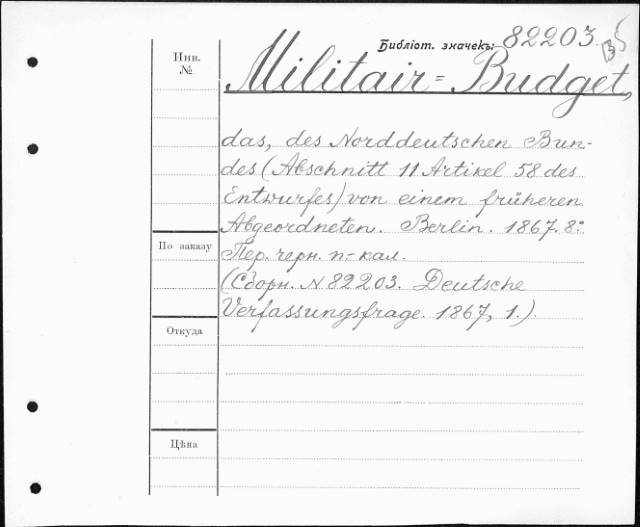 Библіот. значекъ: 82203.
Инв.
№
Militair = Budget,
das, des Norddeutschen Bun-
des (Abschnitt 11 Artikel 58 des
Entwurfes) von einem früheren
Abgeordneten. Berlin. 1867. 8º
По заказу
Пер. черн. п.-кал.
(Сборн. N 82203. Deutsche
Verfassungsfrage. 1867, 1.).
Откуда
Цѣна